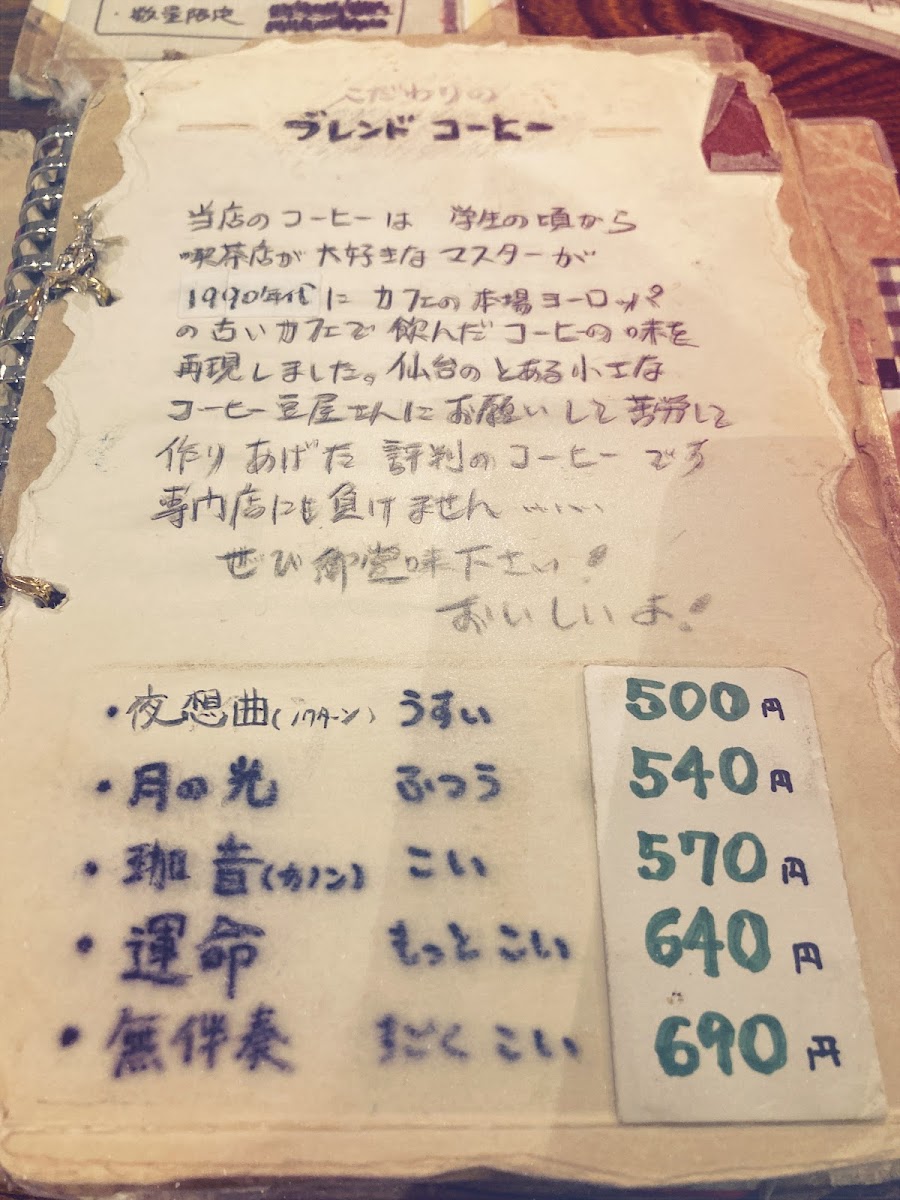 ・数量限定
こだわりの
ブレンド コーヒー
当店のコーヒーは 学生の頃から
喫茶店が大好きなマスターが
1990年代に カフェの本場ヨーロッパ
の古いカフェで飲んだコーヒーの味を
再現しました。仙台のとある小さな
コーヒー豆屋さんにお願いして苦労して
作りあげた評判のコーヒーです
専門店にも負けません……
ぜひ御堂味下さい!
おいしいよ!
・夜想曲(ノクターン) うすい 500円
・月の光 ふつう 540円
・珈音(カノン) こい 570円
・運命 もっとこい 640円
・無伴奏 すごくこい 690円